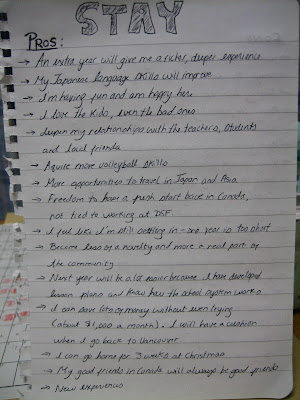 STAY
PROS:
→ An extra year will give me a richer, deeper experience
→ My Japanese language skills will improve
→ I'm having fun and am happy here
→ I love the kids, even the bad ones
→ deepen my relationships with the teachers, students
and local friends
→ Aquire more volleyball skills
→ More opportunities to travel in Japan and Asia
→ Freedom to have a fresh start back in Canada,
not tied to working at DSF
→ I feel like I'm still settling in - one year is too short
→ Become less of a novelty and more a real part of
the community
→ Next year will be a lot easier because I have developed
lesson plans and know how the school system works
→ I can save lots of money without even trying
(about $1,000 a month). I will have a cushion
when I go back to Vancouver
→ I can go home for 3 weeks at Christmas
→ My good friends in Canada will always be good friends
→ New experiences